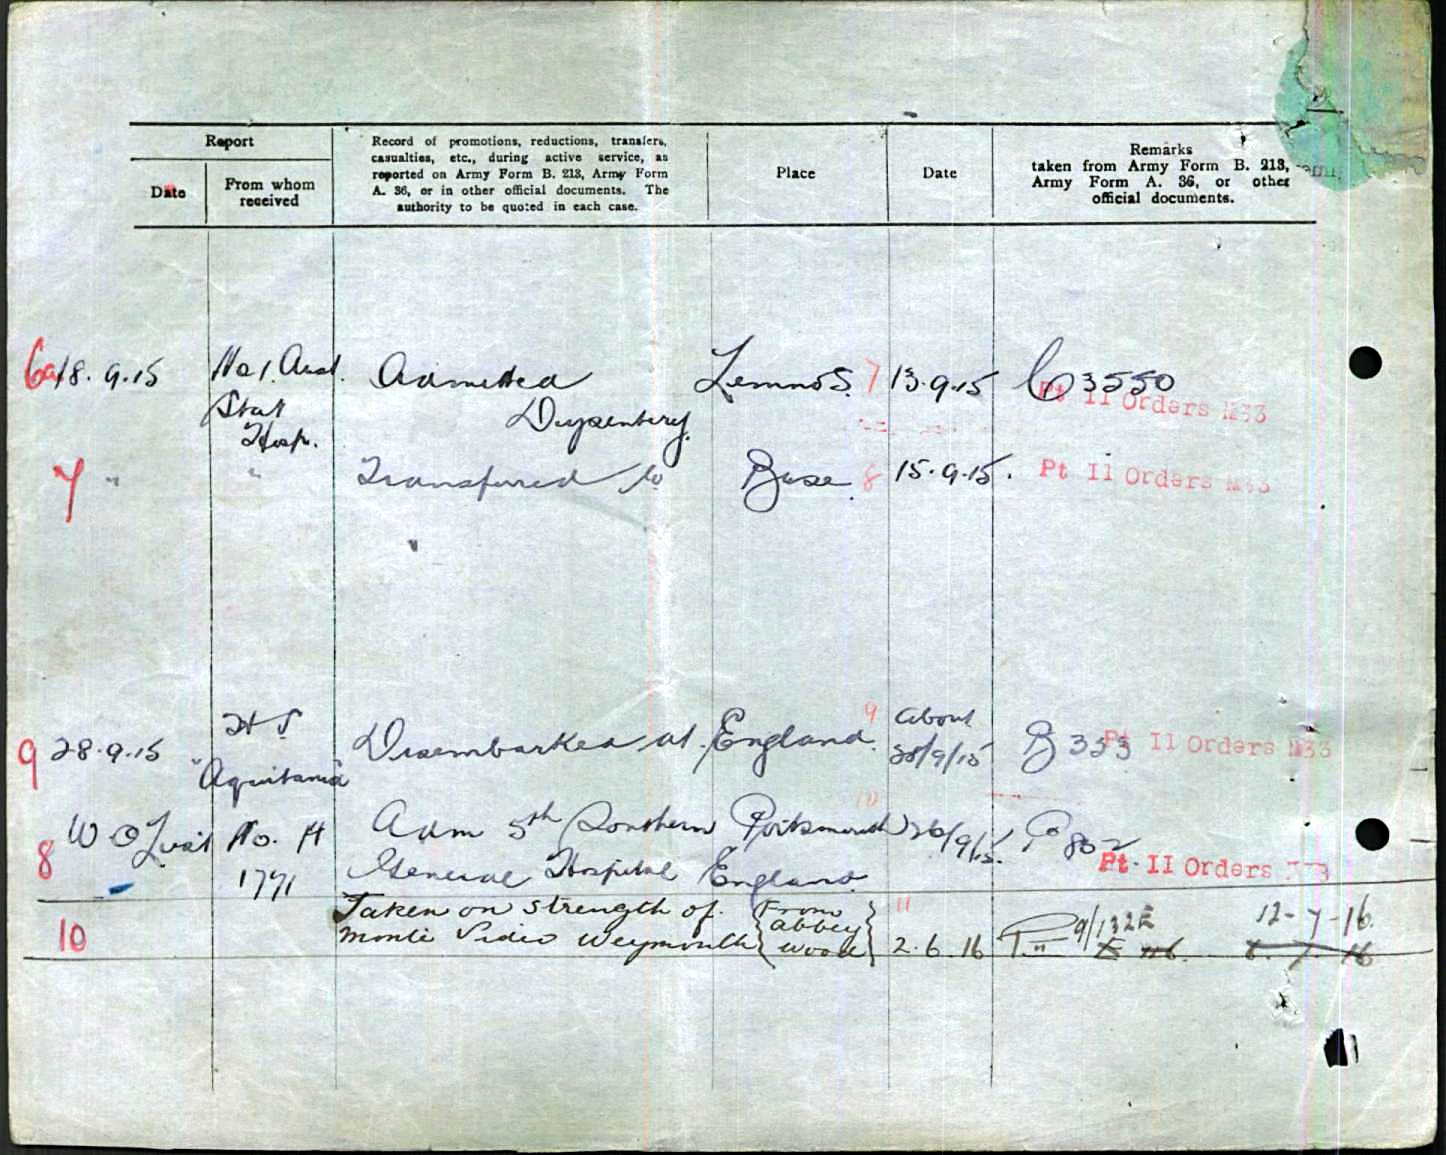 Report
Date
From whom received
Record of promotions, reductions, transfers,
casualties, etc., during active service, as
reported on Army Form B. 213, Army Form
A. 36, or in other official documents. The
authority to be quoted in each case.
Place
Date
Remarks
taken from Army Form B. 213,
Army Form A. 36, or other
official documents.
6a 18.9.15 No 1. Aust. Admitted Lemnos. 7 13.9.15 C 3550
Stat Dysentery Pt II Orders №33
Hosp.
7 " " Transferred to Base. 8 15.9.15. Pt II Orders №33
9 28.9.15 H S Disembarked at England. 9 About B 353 Pt II Orders №33
"Aquitania 28/9/15
10
8 W O List No. H Adm 5th Southern Portsmouth 26/9/15. 802
1771 General Hospital England. Pt II Orders
10 Taken on strength of {From} 11 9/132E 12-7-16.
Monte Video Weymouth {Abbey Wood} 2.6.16